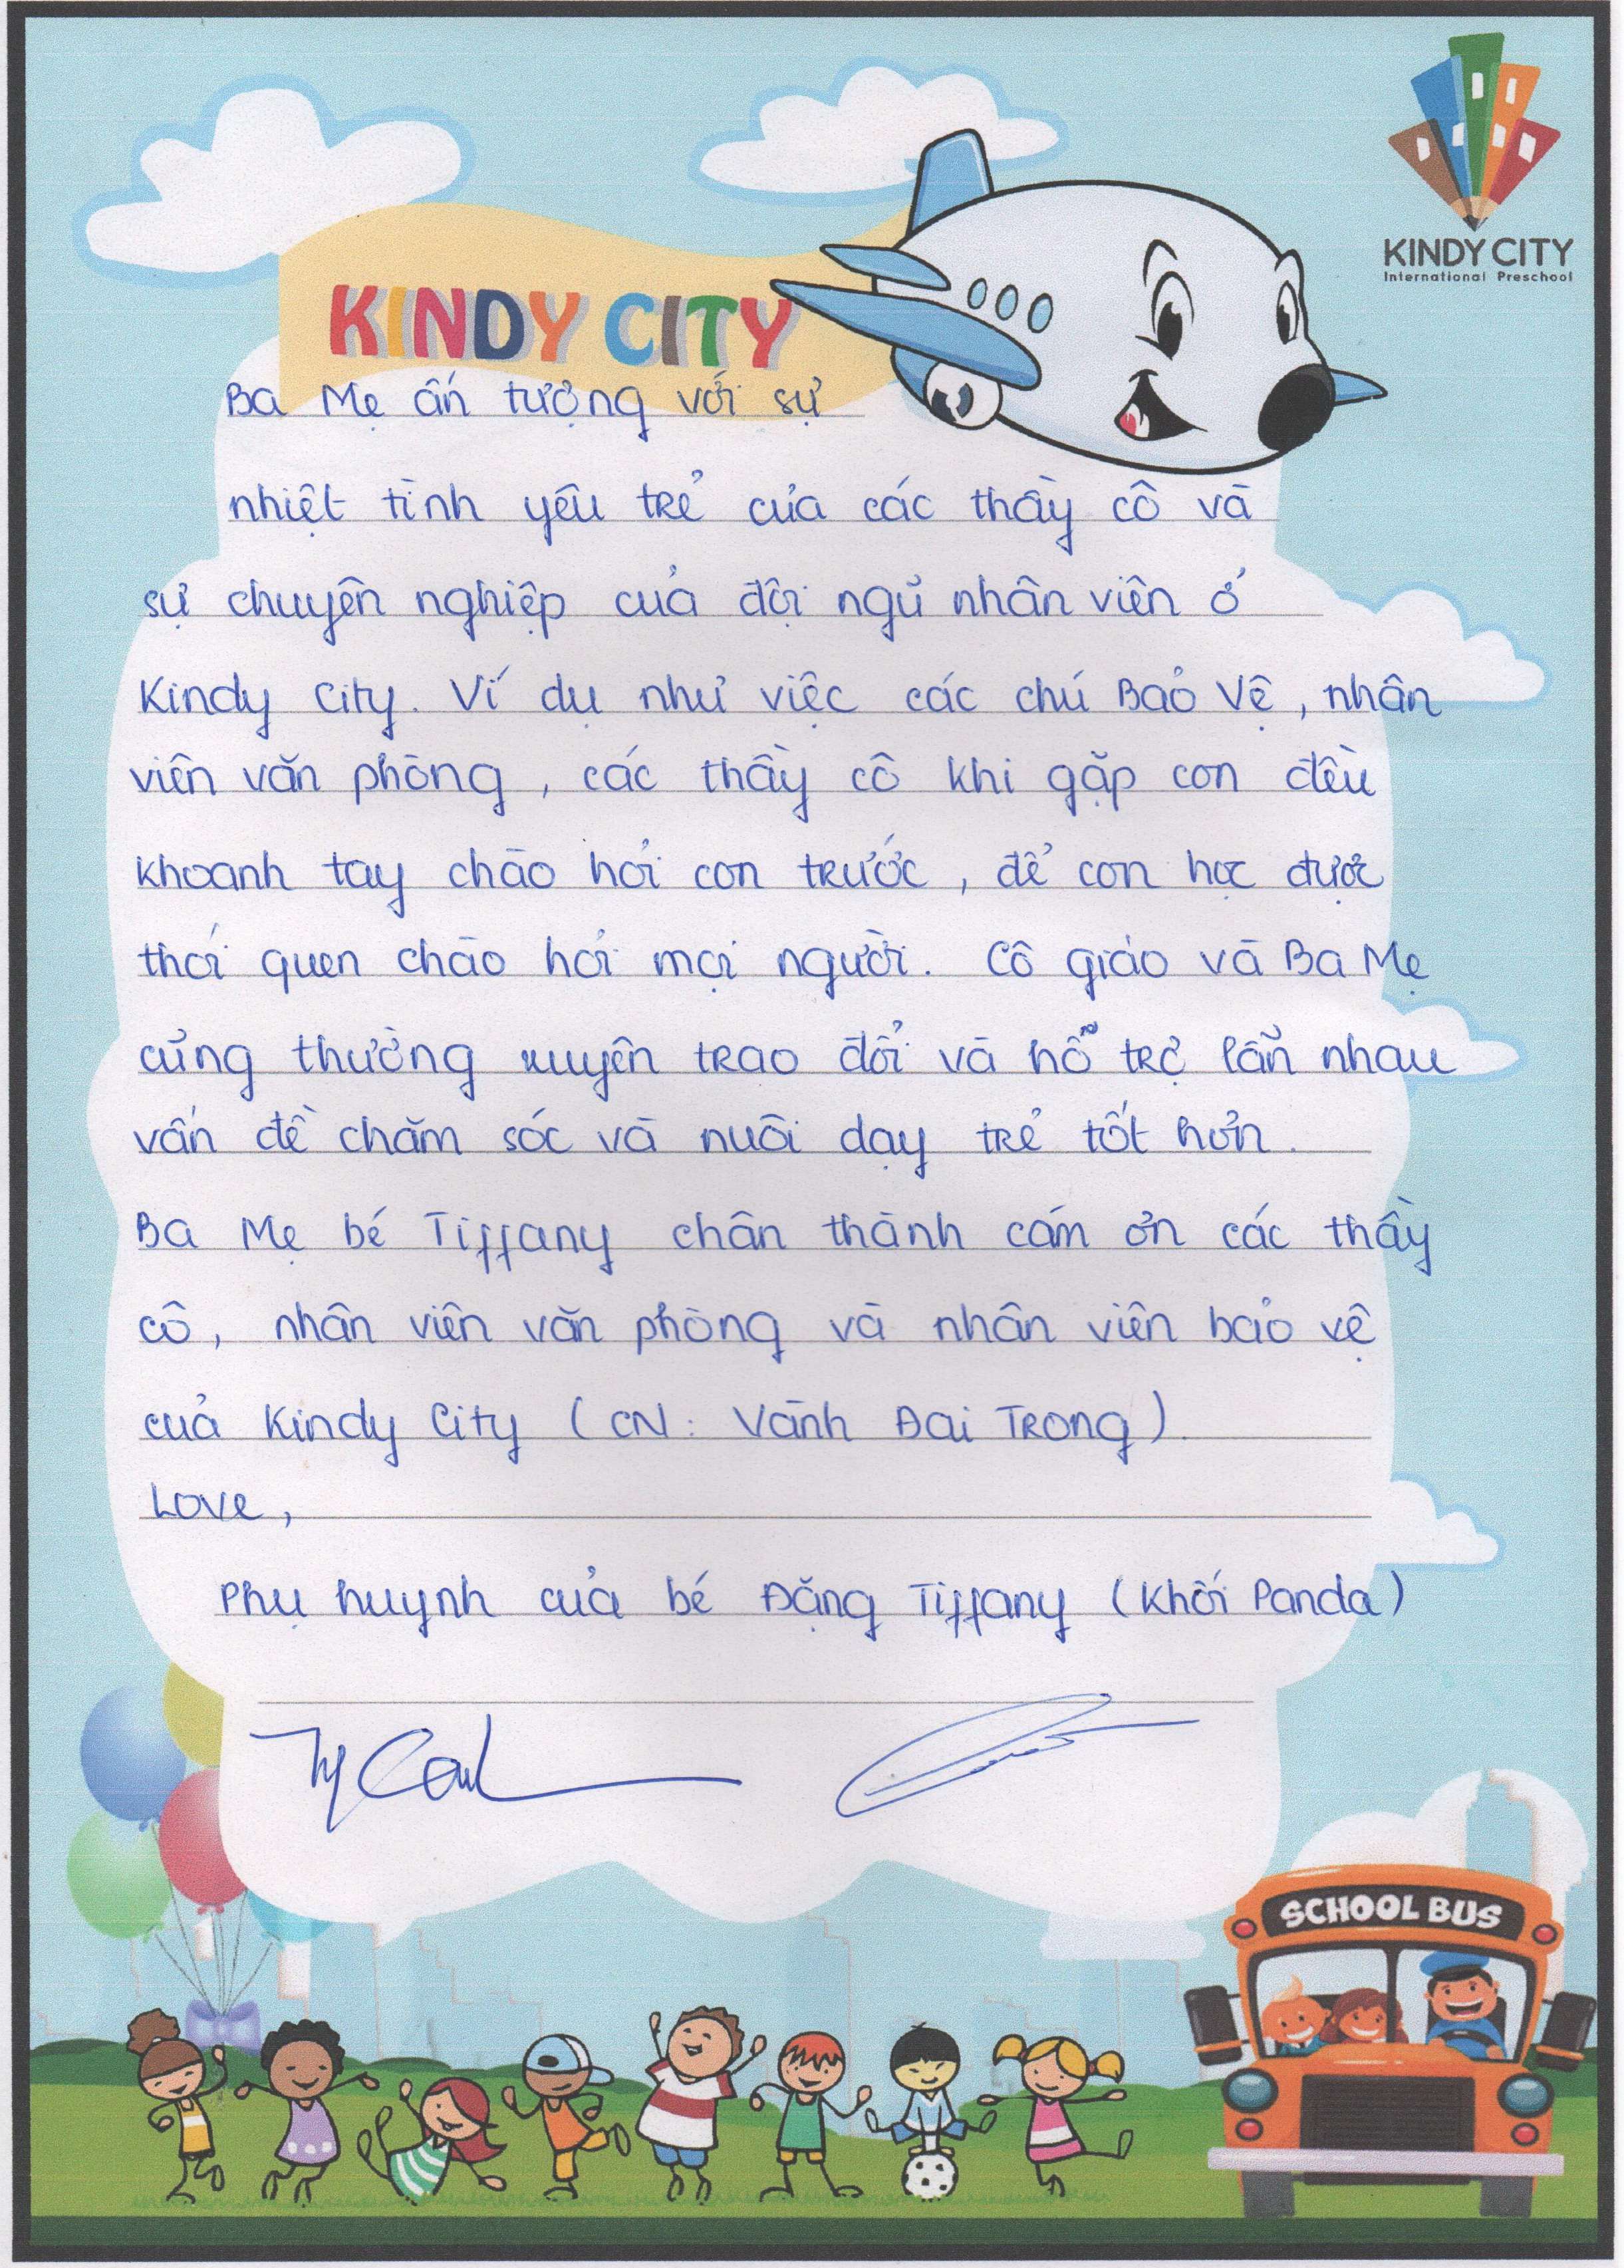 KINDY CITY
International Preschool
KINDY CITY
Ba Mẹ ấn tượng với sự
nhiệt tình yêu trẻ của các thầy cô và
sự chuyên nghiệp của đội ngũ nhân viên ở
Kindy City. Ví dụ như việc các chú Bảo Vệ, nhân
viên văn phòng, các thầy cô khi gặp con đều
khoanh tay chào hỏi con trước, để con học được
thói quen chào hỏi mọi người. Cô giáo và Ba Mẹ
cũng thường xuyên trao đổi và hỗ trợ lẫn nhau
vấn đề chăm sóc và nuôi dạy trẻ tốt hơn.
Ba Mẹ bé Tiffany chân thành cám ơn các thầy
cô, nhân viên văn phòng và nhân viên bảo vệ
của Kindy City (CN: Vành Đai Trong).
Love,
Phụ huynh của bé Đặng Tiffany (Khối Panda)
SCHOOL BUS